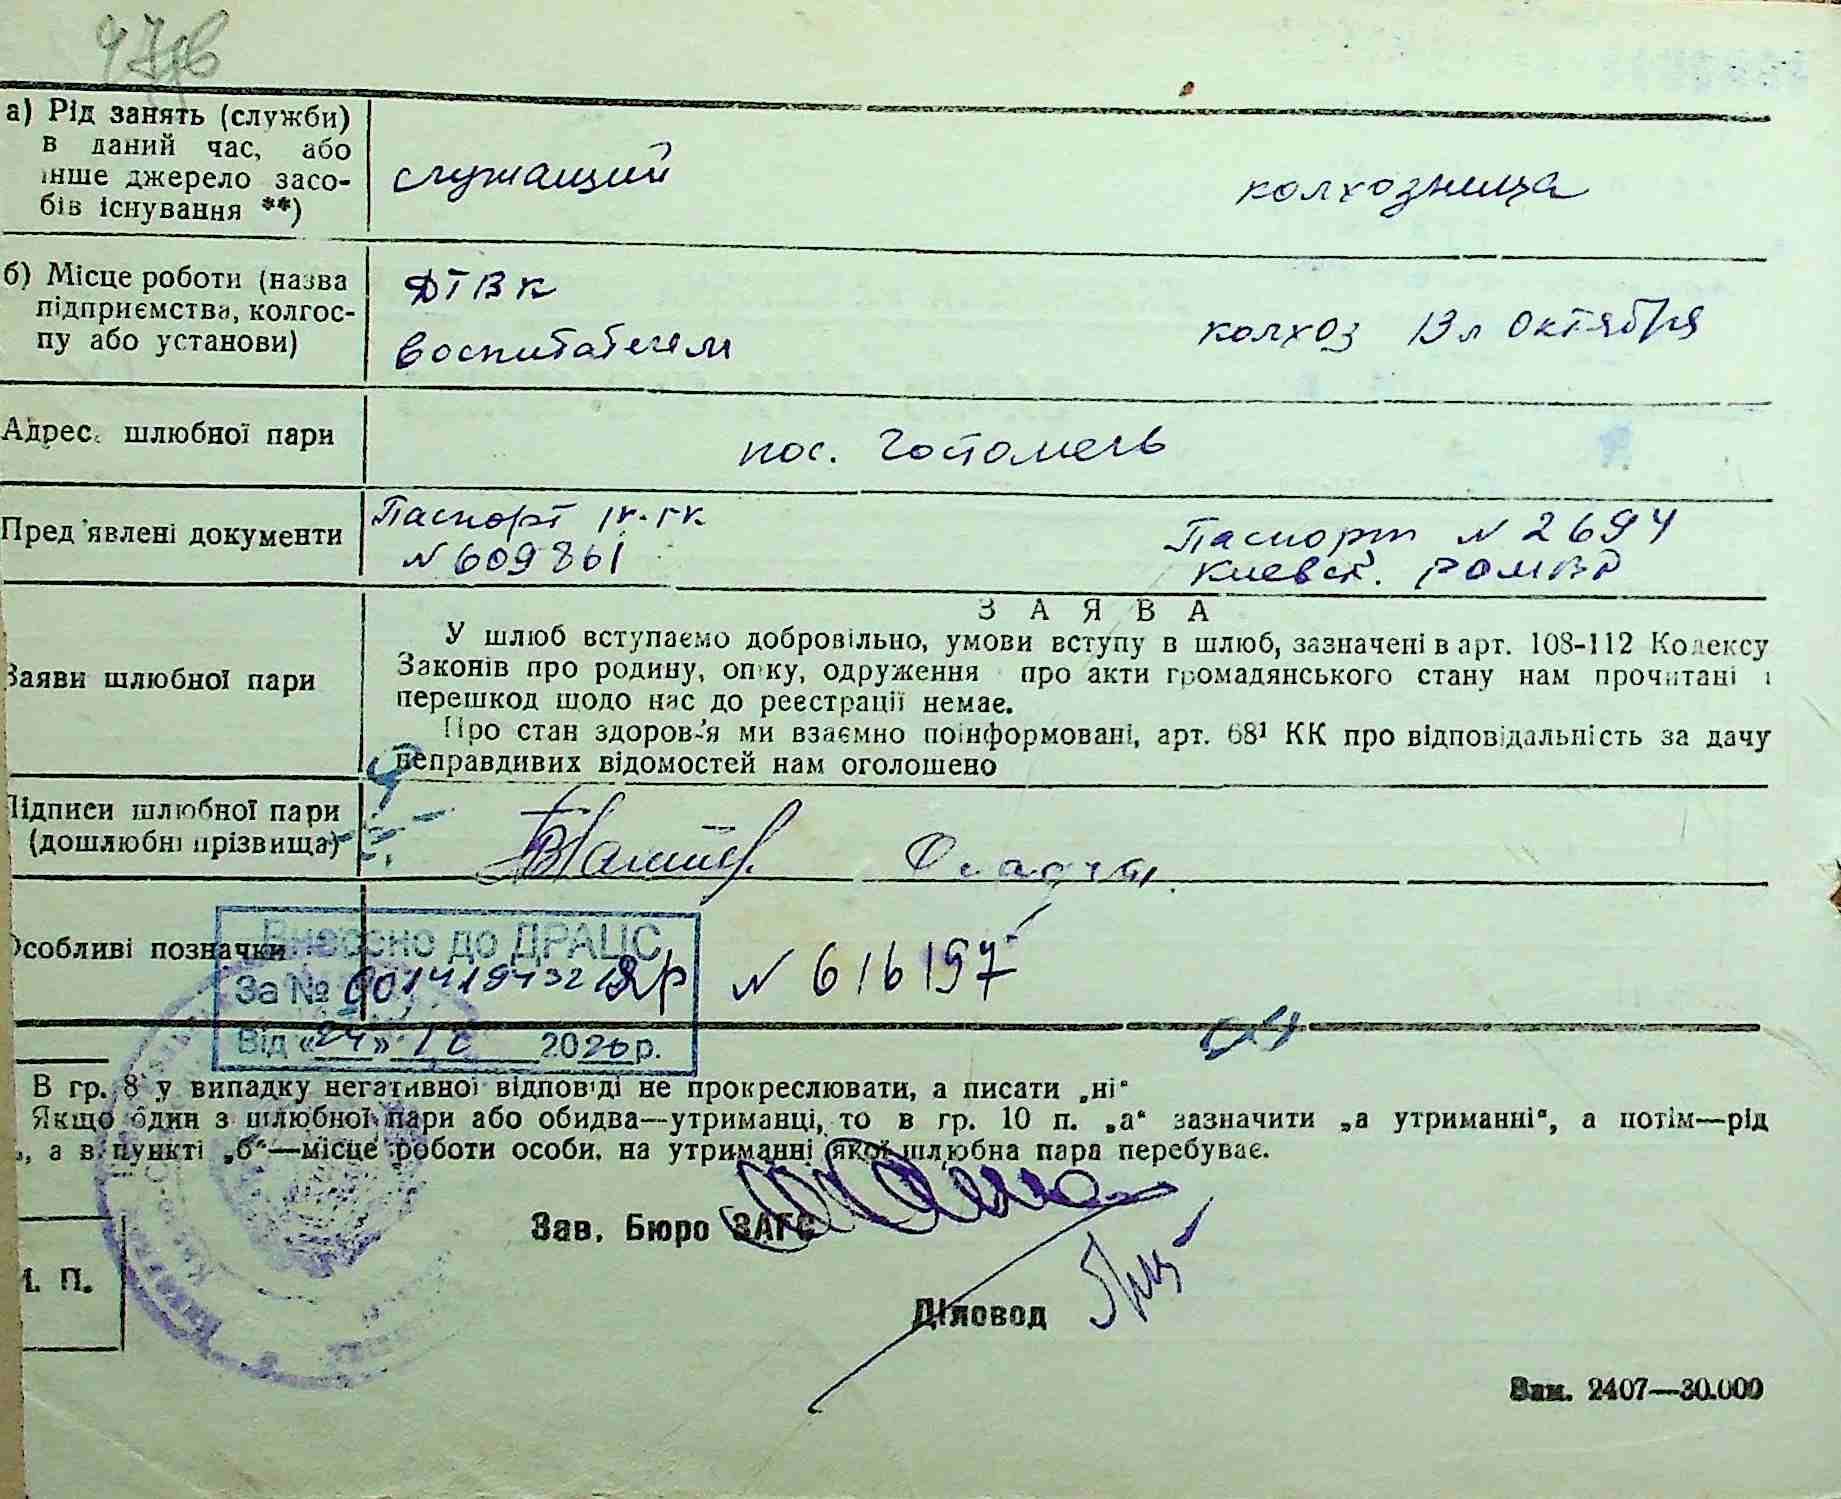 а) Рід занять (служби)
в даний час, або
інше джерело засо-
бів існування **)
служащий
колхозница
б) Місце роботи (назва
підприємства, колгос-
пу або установи)
ДТВК
воспитателем
колхоз 13 л Октября
Адрес шлюбної пари
пос. Гостомель
Пред'явлені документи
Паспорт
N 609861
Паспорт N 2694
Киевск. РОМВД
Заяви шлюбної пари
ЗАЯВА
У шлюб вступаємо добровільно, умови вступу в шлюб, зазначені в арт. 108-112 Кодексу
Законів про родину, опіку, одруження про акти громадянського стану нам прочитані і
перешкод щодо нас до реєстрації немає.
Про стан здоров'я ми взаємно поінформовані, арт. 68¹ КК про відповідальність за дачу
неправдивих відомостей нам оголошено
Підписи шлюбної пари
(дошлюбні прізвища)
Особливі позначки
Внесено до ДРАЦС
За № 00141943219
Від «24» 10 2020 р.
N 616197
В гр. 8 у випадку негативної відповіді не прокреслювати, а писати „ні"
Якщо один з шлюбної пари або обидва—утриманці, то в гр. 10 п. „а" зазначити „а утриманні", а потім—рід
, а в пункті „б"—місце роботи особи, на утриманні якої шлюбна пара перебуває.
Зав. Бюро ЗАГС
М. П.
Діловод
Зам. 2407—30.000